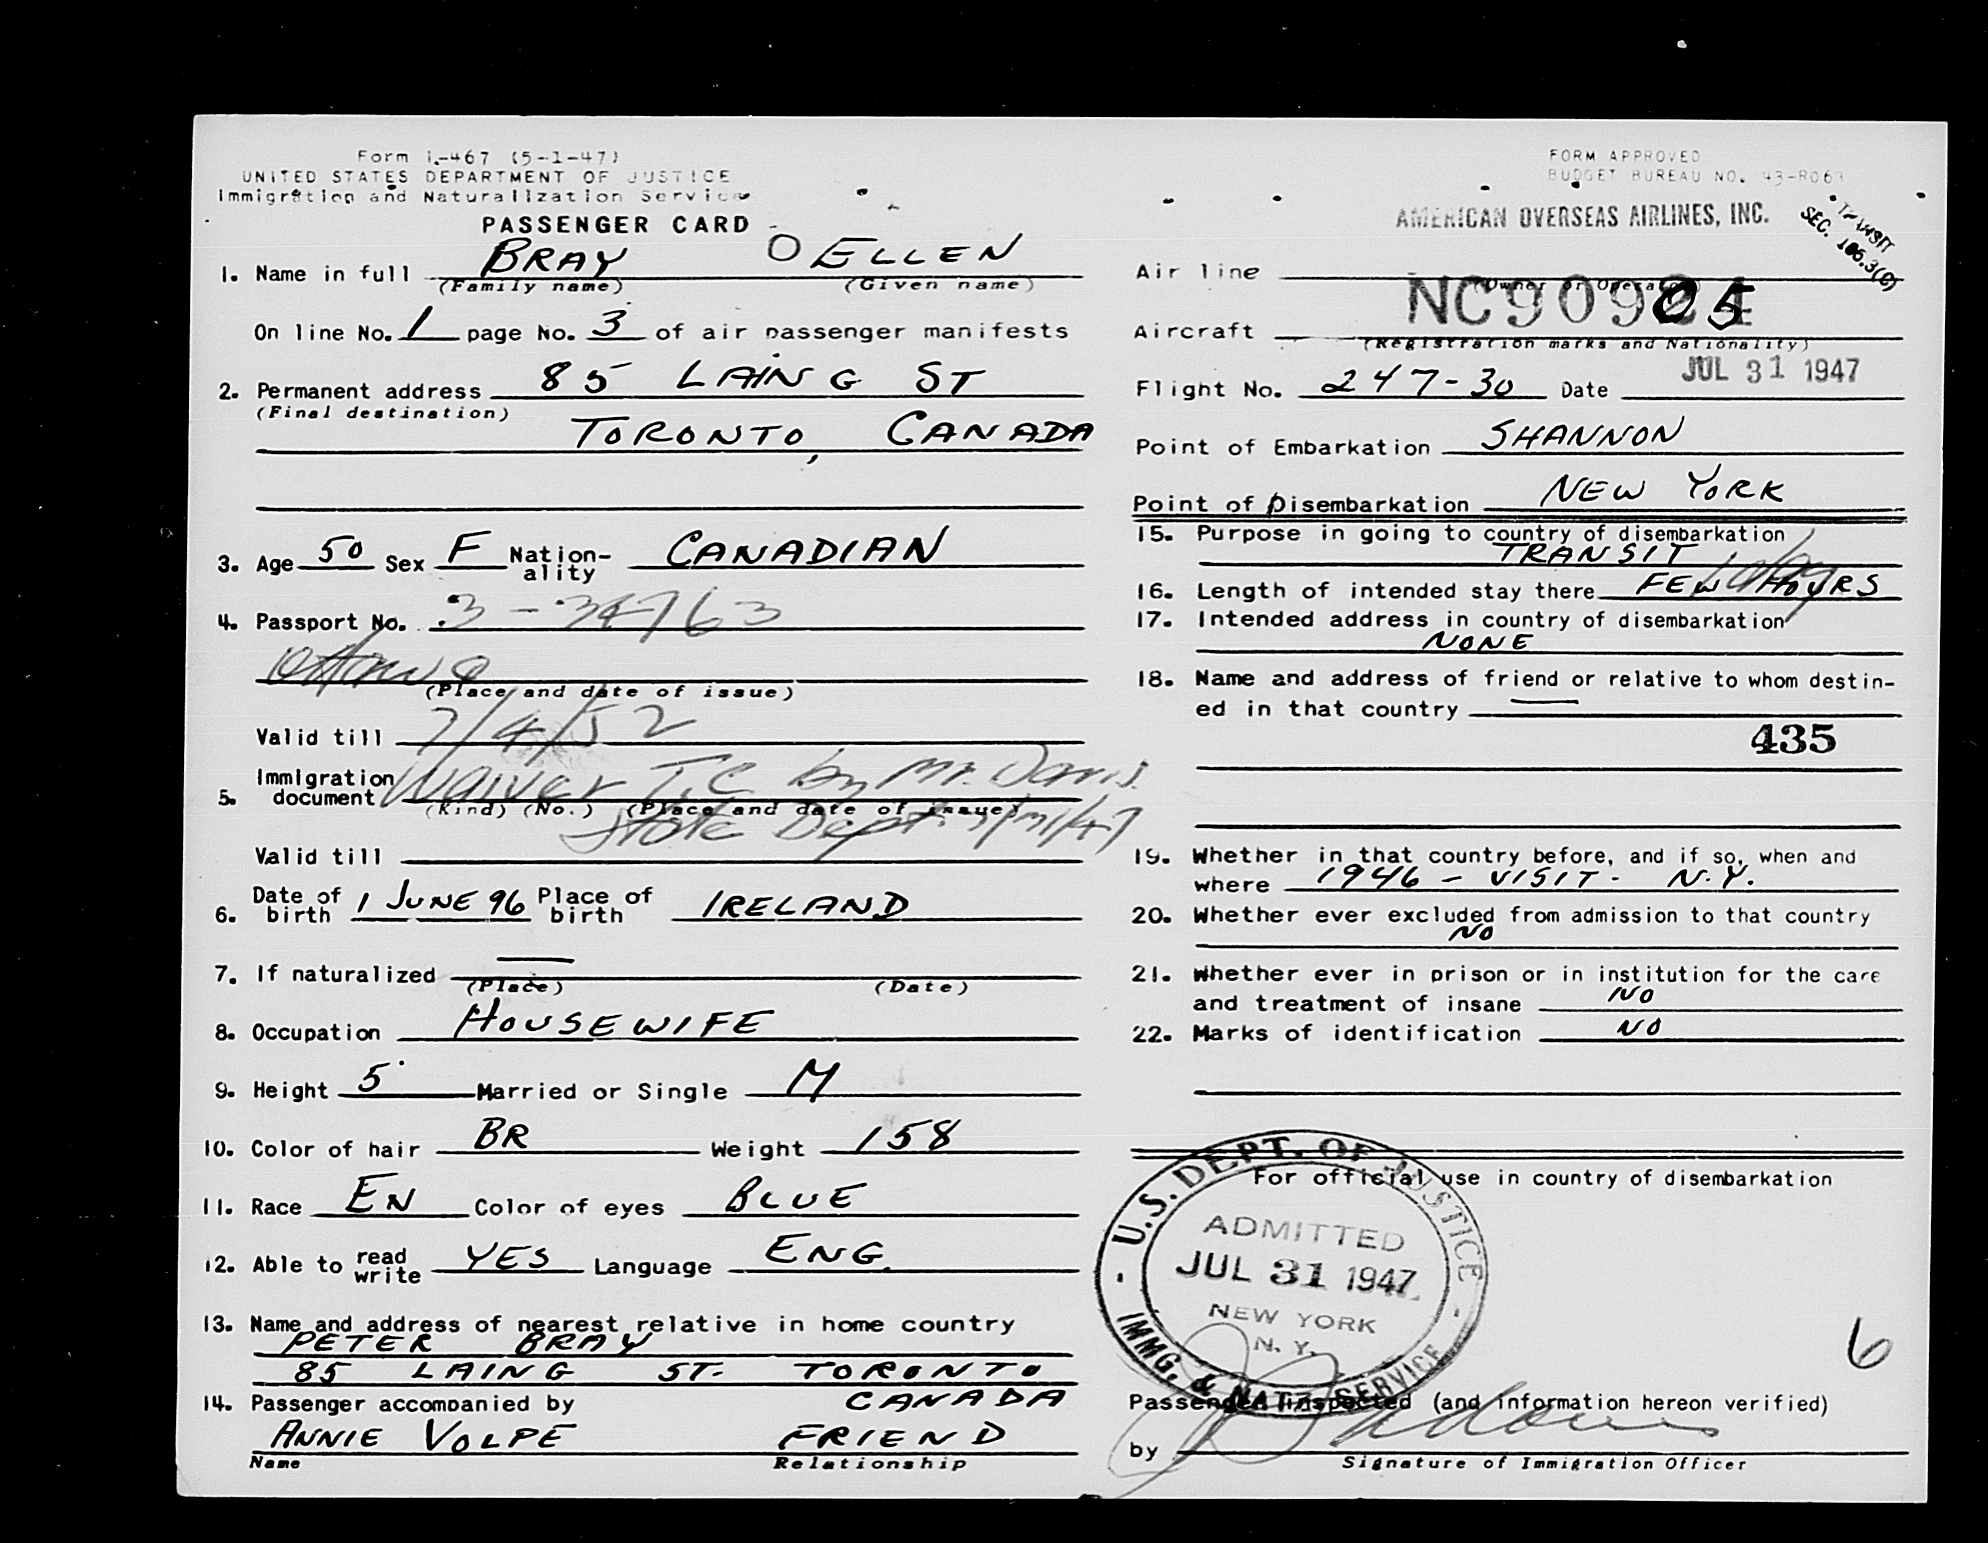 Form I-467 (5-1-47)
UNITED STATES DEPARTMENT OF JUSTICE
Immigration and Naturalization Service
PASSENGER CARD
1. Name in full BRAY O ELLEN
(Family name) (Given name)
On line No. 1 page No. 3 of air passenger manifests
2. Permanent address 85 LAING ST
(Final destination)
TORONTO, CANADA
3. Age 50 Sex F Nation-ality CANADIAN
4. Passport No. 3-34763
Ottawa
(Place and date of issue)
Valid till 7/4/52
5. Immigration document Waiver T.C. by Mr. Davis
(Kind) (No.) (Place and date of issue)
State Dept. 7/31/47
Valid till
6. Date of birth 1 JUNE 96 Place of birth IRELAND
7. If naturalized —
(Place) (Date)
8. Occupation HOUSEWIFE
9. Height 5' Married or Single M
10. Color of hair BR Weight 158
11. Race EN Color of eyes BLUE
12. Able to read write YES Language ENG.
13. Name and address of nearest relative in home country
PETER BRAY
85 LAING ST. TORONTO
CANADA
14. Passenger accompanied by
ANNIE VOLPE FRIEND
Name Relationship
FORM APPROVED
BUDGET BUREAU NO. 43-R063
AMERICAN OVERSEAS AIRLINES, INC.
TRANSIT
SEC. 186.3(C)
Air line
(Owner or Operator)
Aircraft NC90905
(Registration marks and Nationality)
Flight No. 247-30 Date JUL 31 1947
Point of Embarkation SHANNON
Point of Disembarkation NEW YORK
15. Purpose in going to country of disembarkation
TRANSIT
16. Length of intended stay there FEW HOURS
17. Intended address in country of disembarkation
NONE
18. Name and address of friend or relative to whom destin-
ed in that country —
435
19. Whether in that country before, and if so, when and
where 1946 - VISIT - N.Y.
20. Whether ever excluded from admission to that country
NO
21. Whether ever in prison or in institution for the care
and treatment of insane NO
22. Marks of identification NO
For official use in country of disembarkation
U.S. DEPT. OF JUSTICE
ADMITTED
JUL 31 1947
NEW YORK
N. Y.
IMMG. & NATZ. SERVICE
6
Passenger inspected (and information hereon verified)
by
Signature of Immigration Officer